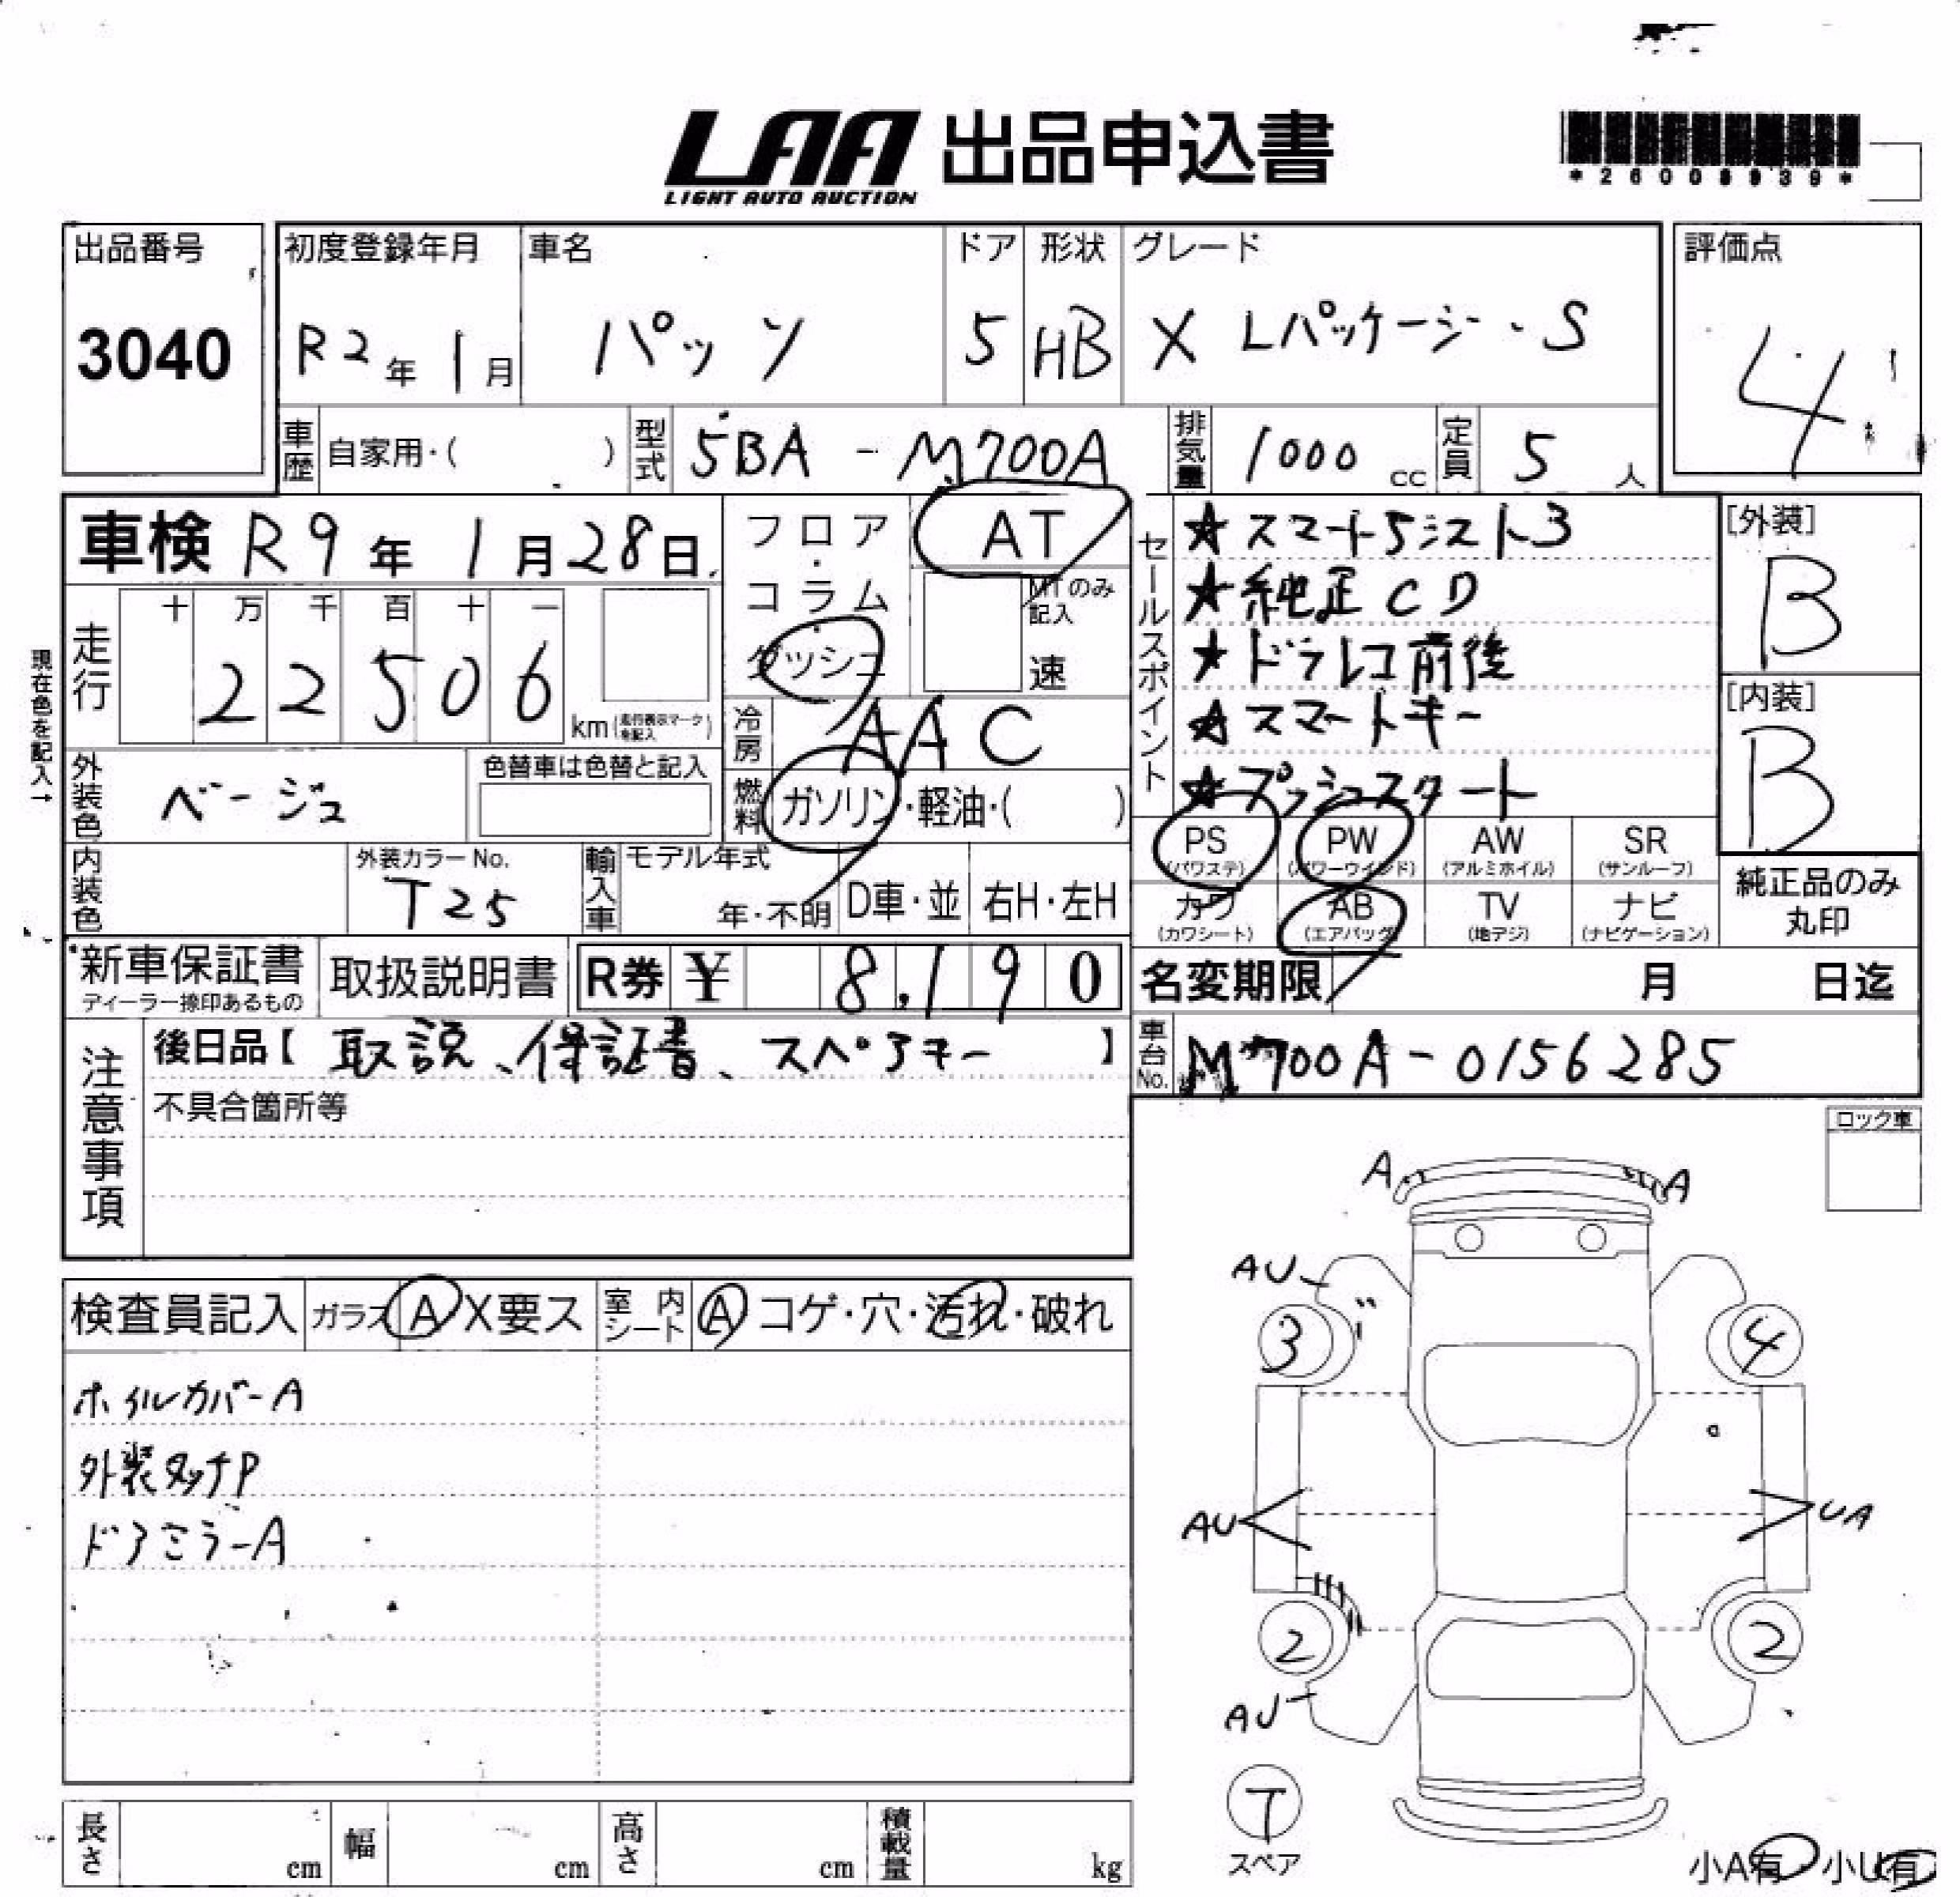 LAA 出品申込書
LIGHT AUTO AUCTION
*26008939*
出品番号
3040
初度登録年月
R2年 1月
車名
パッソ
ドア
5
形状
HB
グレード
X Lパッケージ・S
評価点
4
車歴 自家用・( )
型式 5BA - M700A
排気量 1000 cc
定員 5 人
車検 R9年 1月28日
フロア・コラム・ダッシュ
AT
MTのみ記入
速
現在色を記入→
走行 十 万 千 百 十 一
22506 km(走行表示マークを記入)
冷房 AAC
外装色 ベージュ
色替車は色替と記入
燃料 ガソリン・軽油・( )
内装色
外装カラーNo.
T25
輸入車 モデル年式
年・不明 D車・並 右H・左H
セールスポイント
★スマートSシスト3
★純正CD
★ドラレコ前後
★スマートキー
★プッシュスタート
[外装]
B
[内装]
B
PS (パワステ) PW (パワーウインド) AW (アルミホイル) SR (サンルーフ)
カワ (カワシート) AB (エアバッグ) TV (地デジ) ナビ (ナビゲーション)
純正品のみ丸印
新車保証書 取扱説明書 R券 ¥ 8,190
ディーラー捺印あるもの
名変期限 月 日迄
車台No. M700A-0156285
注意事項
後日品【 取説、保証書、スペアキー 】
不具合箇所等
ロック車
検査員記入 ガラス A X要ス 室内シート A コゲ・穴・汚れ・破れ
ホイルカバーA
外装タッチP
ドアミラーA
A A
AU
3 4
AU UA
2 2
AU
T
スペア
小A有 小U有
長さ cm 幅 cm 高さ cm 積載量 kg